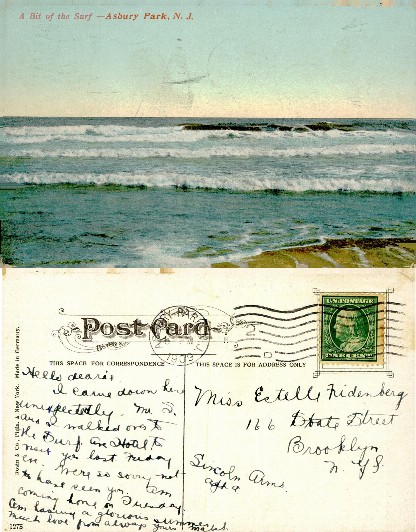 A Bit of the Surf — Asbury Park, N. J.
Post Card
THIS SPACE FOR CORRESPONDENCE
THIS SPACE IS FOR ADDRESS ONLY
Made in Germany.
Hello dearie
I came down here
unexpectedly. Mr. F.
and I walked over to
the Surf Ave Hotel to
meet you last Friday
eve. Were so sorry not
to have seen you. Am
coming home on Tuesday
Am having a glorious summer
Much love from always yours
1275
Miss Estelle Fridenberg
166 State Street
Brooklyn
N. Y.
Lincoln Arms